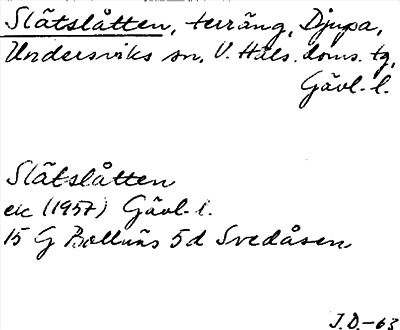 Slätslåtten, terräng, Djupa,
Undersviks sn, V. Häls. doms. tg,
Gävl. l.
Slätslåtten
ek (1957) Gävl. l.
15 G Bollnäs 5d Svedåsen
J.D.-63